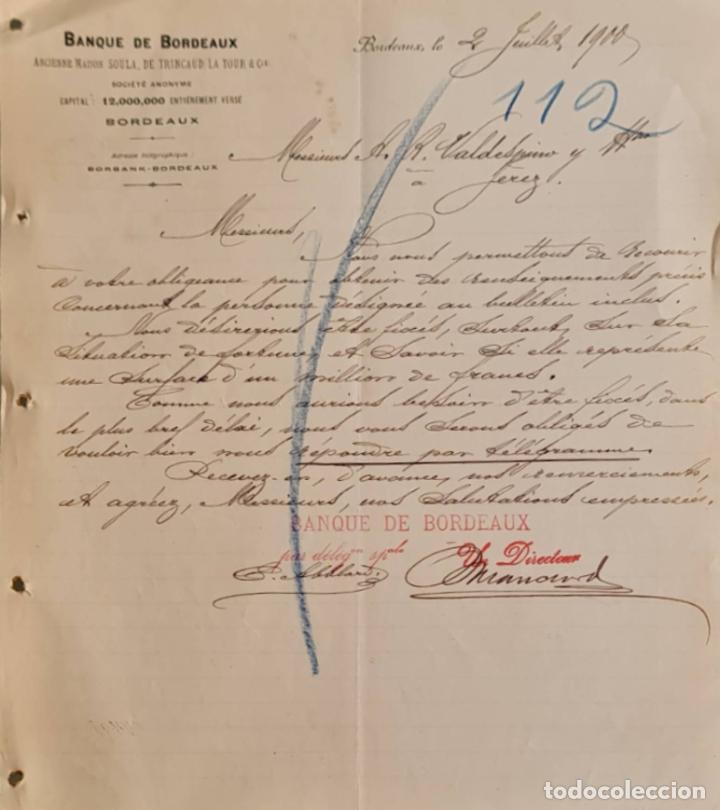 BANQUE DE BORDEAUX
ANCIENNE MAISON SOULA, DE TRINCAUD LA TOUR & Cie
SOCIÉTÉ ANONYME
CAPITAL : 12,000,000 ENTIÈREMENT VERSÉ
BORDEAUX
Adresse télégraphique :
BORBANK-BORDEAUX
Bordeaux, le 2 Juillet 1900
112
Messieurs A. R. Valdespino y Hno
à Jerez.
Messieurs,
Nous nous permettons de recourir
à votre obligeance pour obtenir des renseignements précis
concernant la personne désignée au bulletin inclus.
Nous désirerions être fixés, surtout, sur la
situation de fortune, et savoir si elle représente
une surface d'un million de francs.
Comme nous aurions besoin d'être fixés, dans
le plus bref délai, nous vous serons obligés de
vouloir bien nous répondre par télégramme.
Recevez-en, d'avance, nos remerciements,
et agréez, Messieurs, nos salutations empressées.
BANQUE DE BORDEAUX
par délégon spale
Un Directeur
todocoleccion